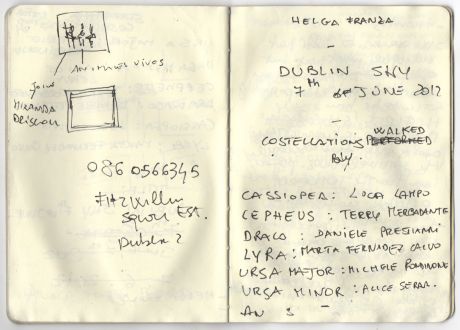 ANIMALES VIVOS
JOHN
MIRANDA
DRISCOLL
086 0566345
Fitzwilliam
Square Est.
Dublin 2
HELGA FRANZA
–
DUBLIN SKY
7th OF JUNE 2012
–
WALKED
COSTELLATIONS PERFORMED
by
CASSIOPEA: LUCA LAMPO
CEPHEUS: TERRY MERCADANTE
DRACO: DANIELE
LYRA: MARTA FERNANDEZ CALVO
URSA MAJOR: MICHELE
URSA MINOR: ALICE